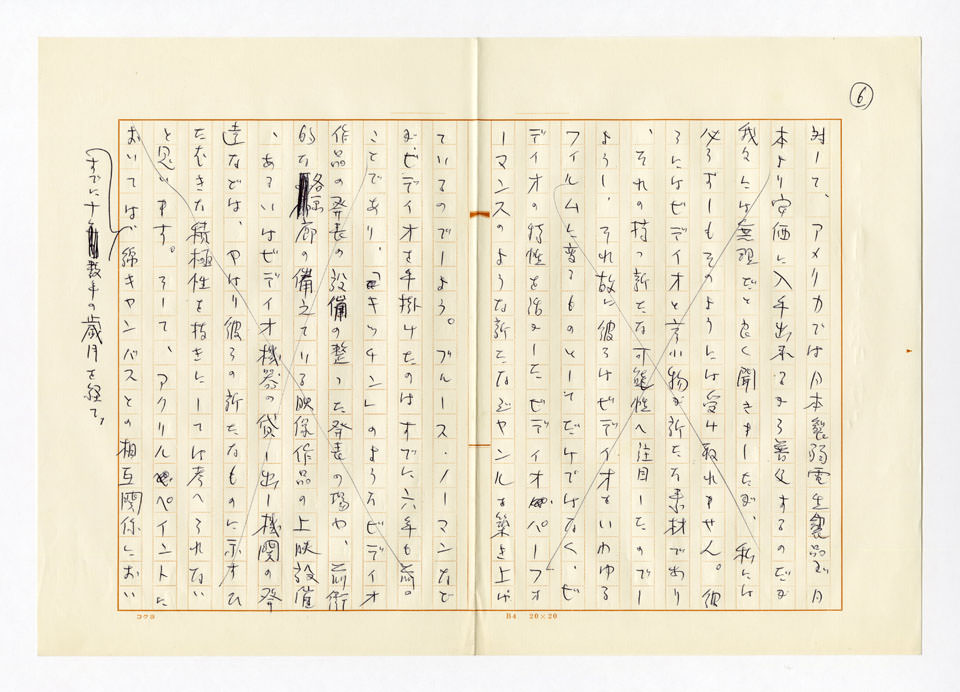 ⑥
対して、アメリカでは日本製弱電生製品が日
本より安価に入手出来るから普及するのだが
我々には無理だと良く聞きましたが、私には
必らずしもそのようには受け取れません。彼
らにはビディオと言う物が新たな素材であり
、それの持つ新たな可能性へ注目したのでし
ょうし、それ故に彼らはビディオをいわゆる
フィルムに替るものとしてだけではなく、ビ
ディオの特性を活かしたビディオ・パーフォ
ーマンスのような新たなジャンルを築き上げ
ているのでしょう。ブルース・ノーマンなど
が、ビディオを手掛けたのはすでに六年も前の
ことであり、「キッチン」のようなビディオ
作品の発表の設備の整った発表の場や、前衛
的な各画廊の備えている映像作品の上映設備
、あるいはビディオ機器の貸し出し機関の発
達などは、やはり彼らの新たなものに示すひ
たむきな積極性を抜きにしては考へられない
と思います。そして、アクリル・ペイントに
おいては、綿キャンバスとの相互関係におい
すでに十数年の歳月を経て、
コクヨ
B4 20×20